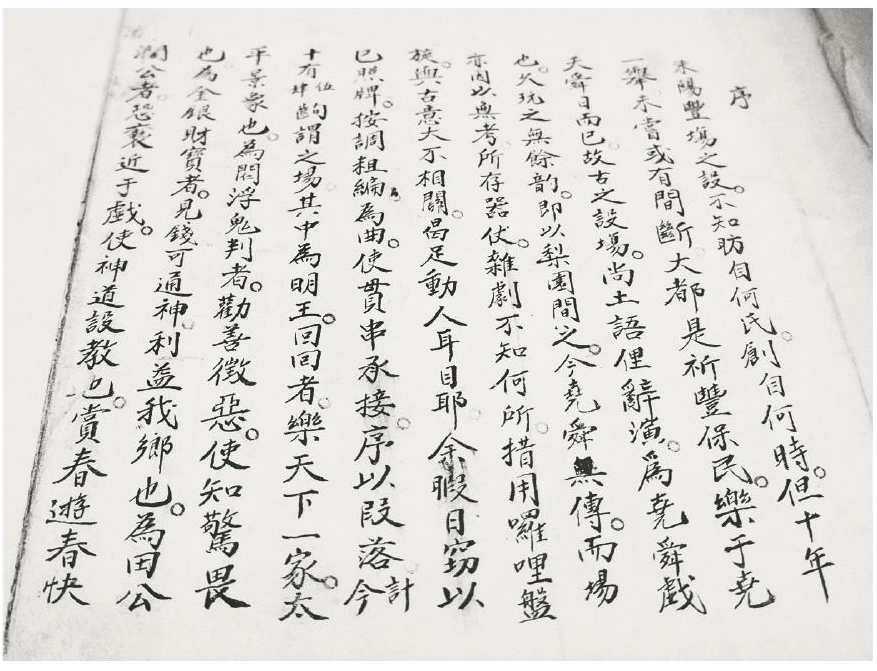 序
朱陽豐場之設。不知昉自何氏。創自何時。但十年
一舉未嘗或有間斷大都是祈豐保民。樂于堯
天舜日而已。故古之設場。尚土語俚辭演。爲堯舜戲
也。久玩之無餘韵。即以梨園間之。今堯舜無傳。而場
亦因以無考所存器仗。雜劇不知何所措用囉哩盤
旋。與古意大不相關。曷足動人耳目耶余暇日窃以
已照牌。按調粗編為曲。使貫串承接。序以段落計今
十有伍肆齣句謂之場其中為明王。回回者。樂天下一家。太
平景象也。為閻浮鬼判者。勸善徵惡。使知驚畏
也為金銀財寶者。見錢可通神利益我鄉也。為田公
澗公者。恐褻近于戲。使神道設教也。賞春遊春快